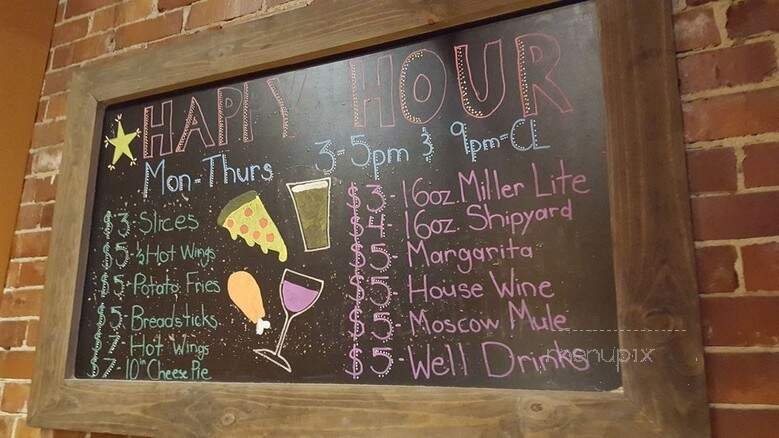 HAPPY HOUR
Mon-Thurs 3-5pm & 9pm-CL
$3-Slices
$5-½ Hot Wings
$5-Potato Fries
$5-Breadsticks
$7-Hot Wings
$7-10" Cheese Pie
$3-16oz. Miller Lite
$4-16oz. Shipyard
$5-Margarita
$5-House Wine
$5-Moscow Mule
$5-Well Drinks
menupix